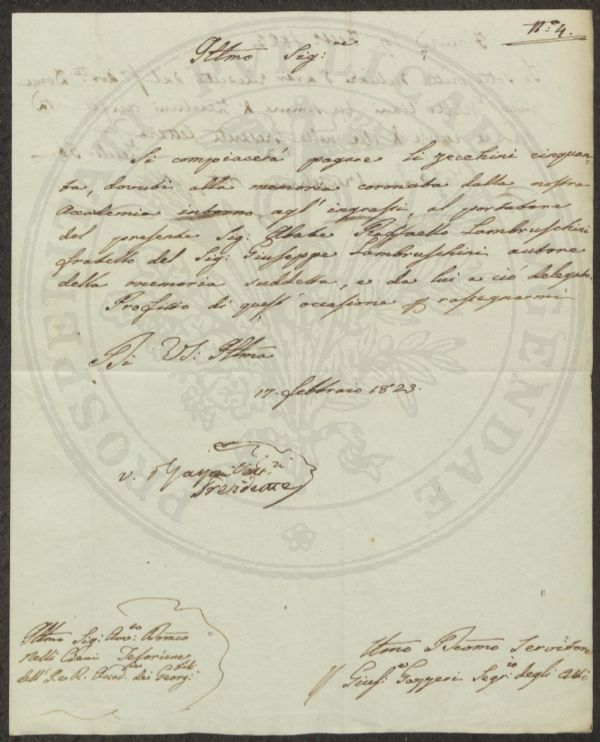 N.º 4.
Illmo Sig:re
Si compiacerà pagare li zecchini cinquan-
ta, dovuti alla memoria coronata dalla nostra
Accademia intorno agl'ingrassi, al portatore
del presente Sig: Abate Raffaello Lambruschini
fratello del Sig: Giuseppe Lambruschini autore
della memoria suddetta, e da lui a ciò delegato.
Profitto di quest'occasione p rassegnarmi
Di VS: Illma
17. febbraio 1823.
v.
Presidente
Illmo Sig: Avv:to Domco
Nelli Ciani Tesoriere
dell'I. e R. Accad. dei Georgi:
Umo Devmo Servitore
Gius:e Gazzeri Seg:rio degli Atti
PROSPERITATI PUBLICAE AUGENDAE